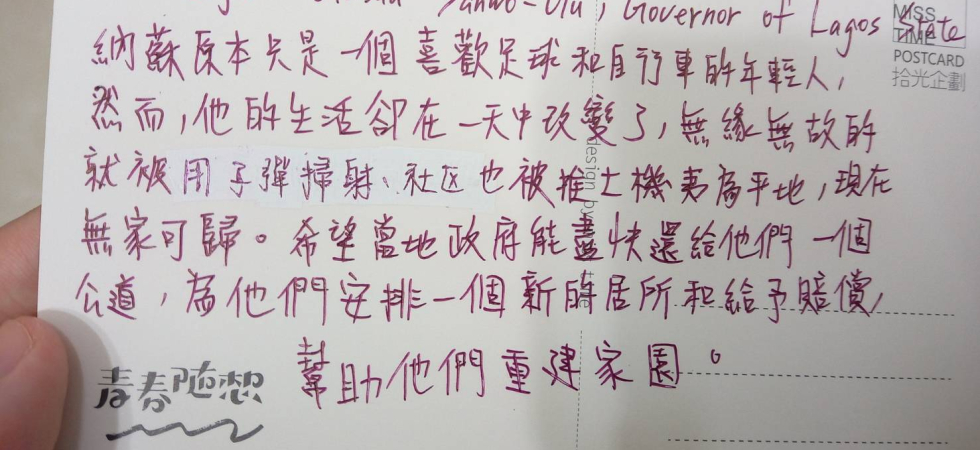 Sanwo-Olu, Governor of Lagos State
納蘇原本只是一個喜歡足球和自行車的年輕人,
然而,他的生活卻在一天中改變了,無緣無故的
就被用子彈掃射、社区也被推土機夷為平地,現在
無家可歸。希望當地政府能盡快還給他們一個
公道,為他們安排一個新的居所和給予賠償,
幫助他們重建家園。
MISS
TIME
POSTCARD
拾光企劃
design by
青春随想